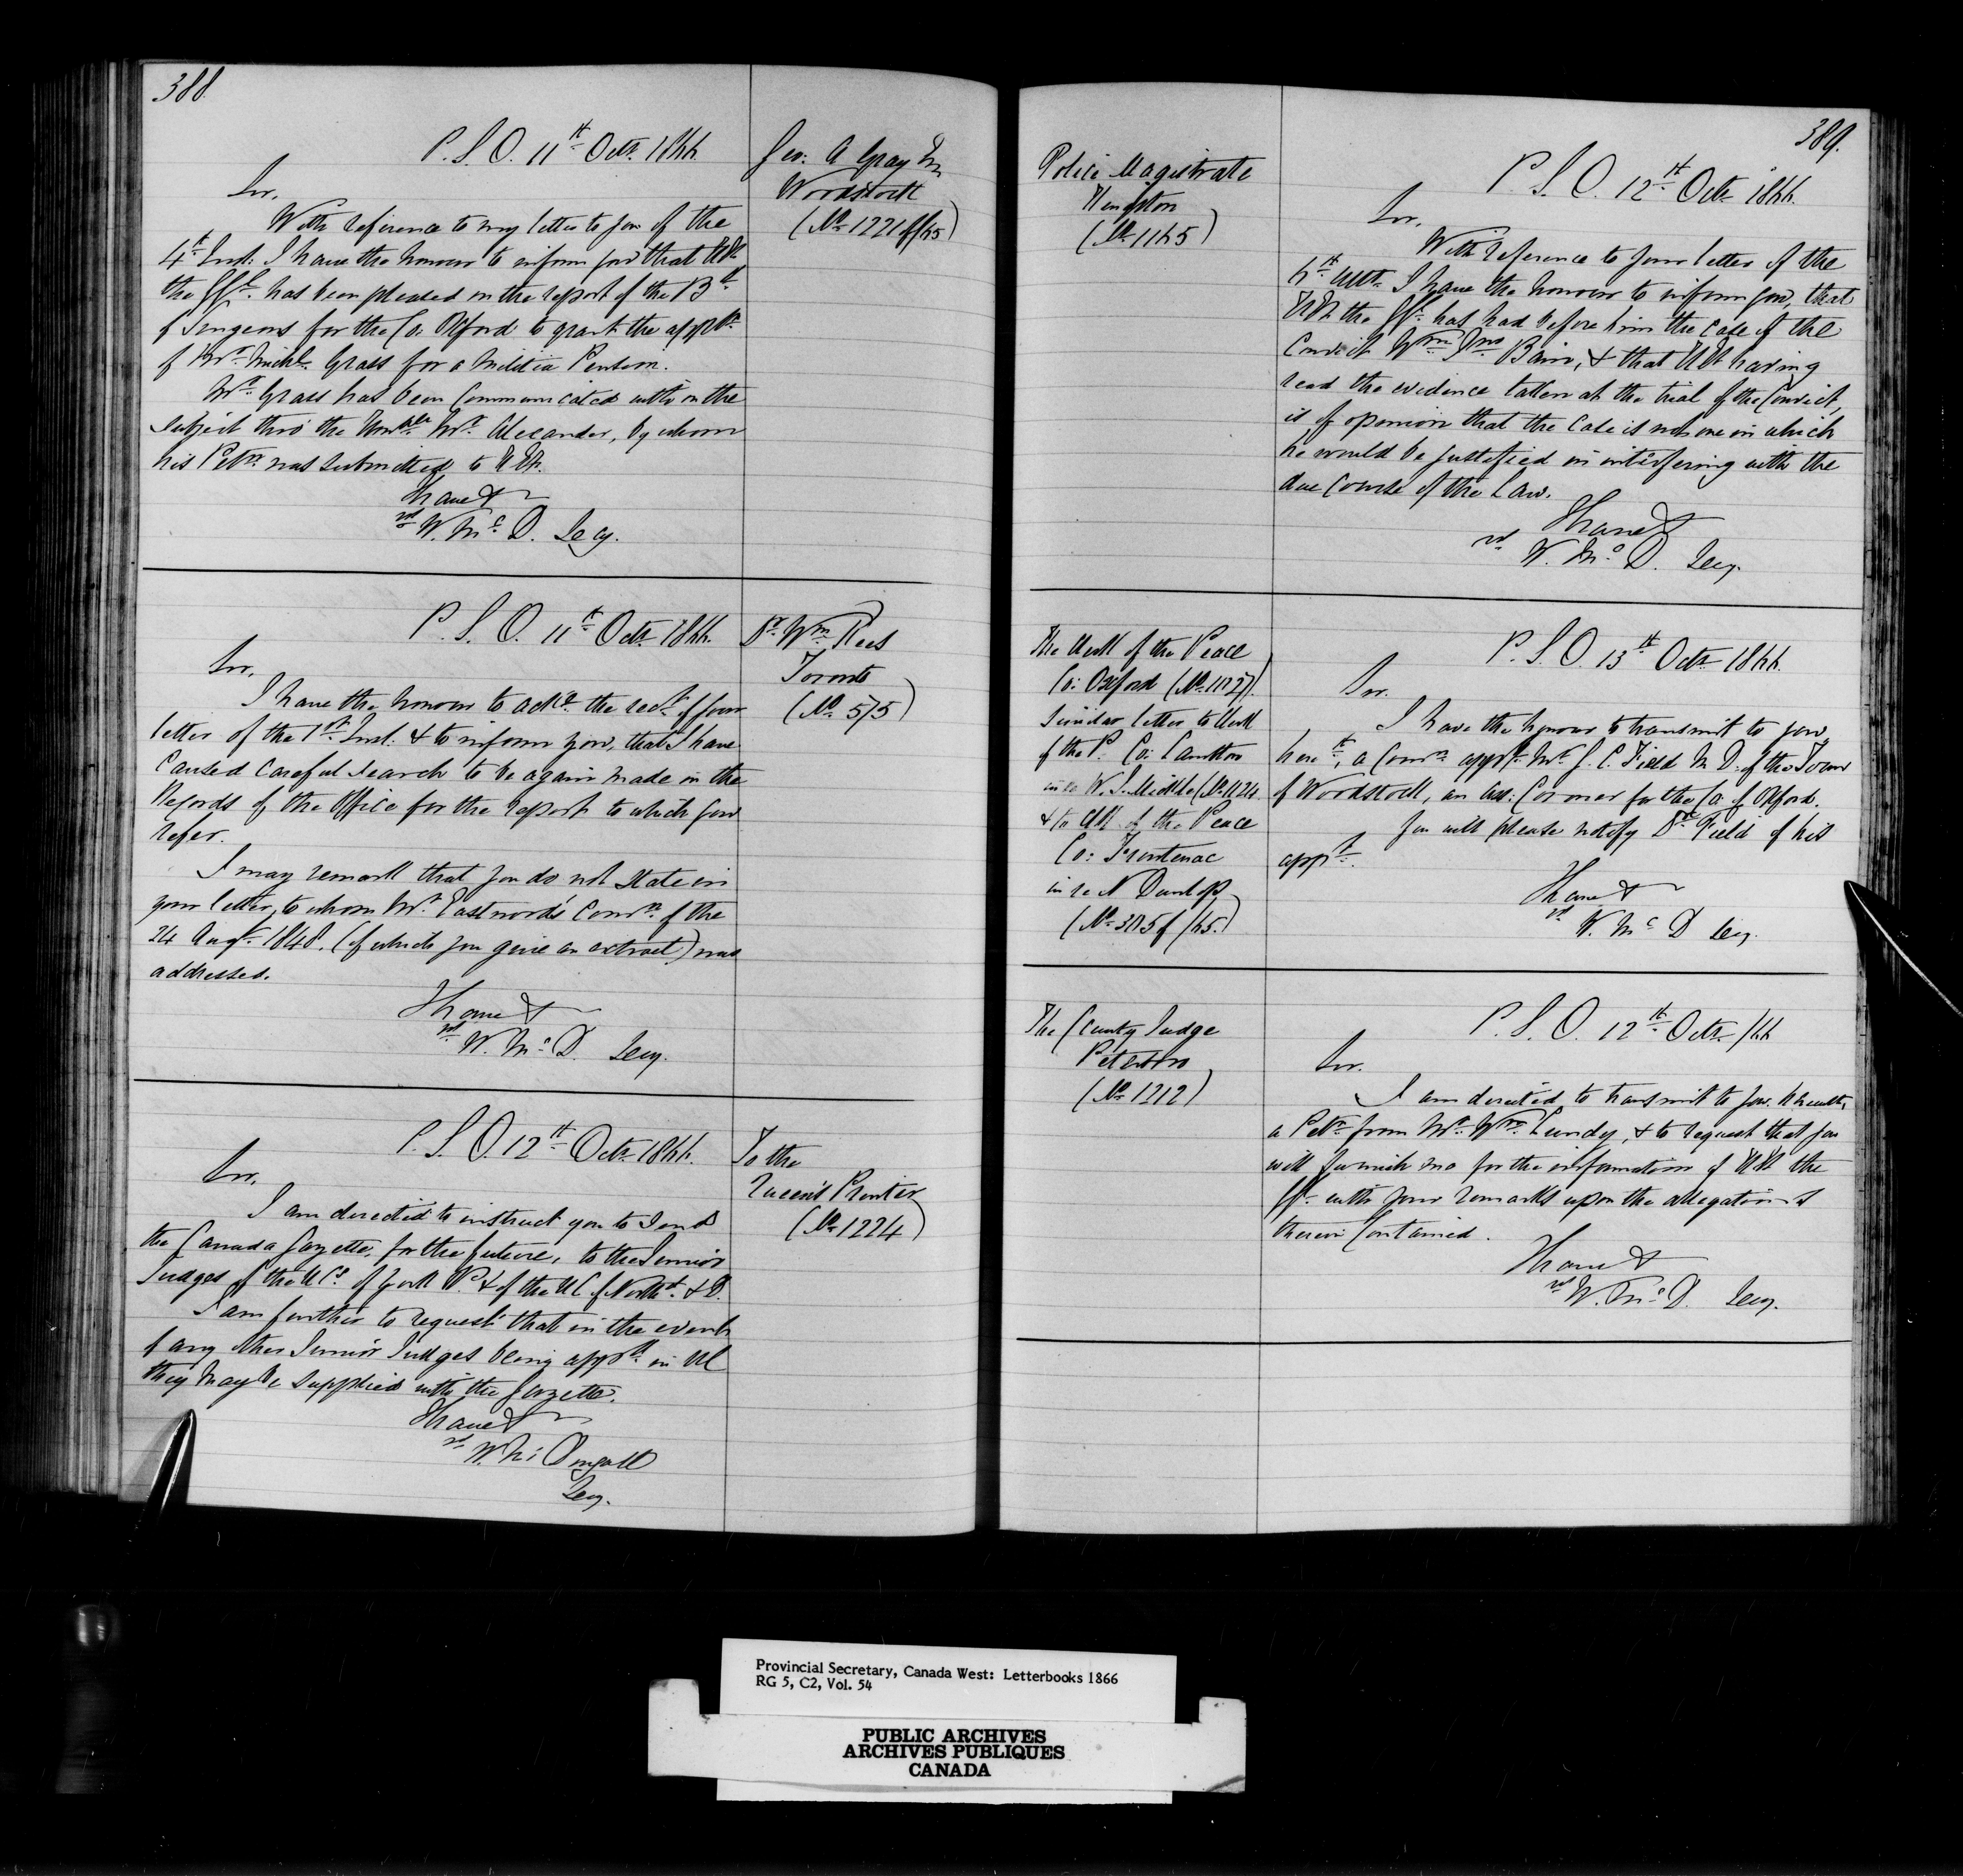 388
P. S. O. 11th Octr. 1866.
Sir,
With reference to my letter to you of the
4th Inst. I have the honour to inform you that H.E.
the Gr. has been pleased on the report of the Bd.
of Surgeons for the Co: Oxford to grant the appn.
of Mr. Michl. Grass for a Militia Pension.
Mr. Grass has been communicated with on the
subject thro' the Honble Mr. Alexander, by whom
his Petn. was submitted to H.E.
I have &
W. McD. Secy.
Geo: A Gray
Woodstock
(No. 1221 of /65)
P. S. O. 11th Octr. 1866.
Sir,
I have the honour to ackn. the rect. of your
letter of the 1st Inst: & to inform you, that I have
caused careful search to be again made in the
Records of the Office for the report to which you
refer.
I may remark that you do not state in
your letter, to whom Mr. Eastwood's Comn. of the
24 Augt. 1848. (of which you give an extract) was
addressed.
I have &
W. McD. Secy.
Dr. Wm. Rees
Toronto
(No. 575)
P. S. O. 12th Octr. 1866.
Sir,
I am directed to instruct you to send
the Canada Gazette, for the future, to the Junior
Judges of the U Cs. of York & P. & of the U C. of Northd. & D.
I am further to request that in the event
of any other Junior Judges being appd. in UC
they may be supplied with the Gazette.
I have &
W. McDougall
Secy.
To the
Queen's Printer
(No. 1224)
389.
Police Magistrate
Kingston
(No. 1165)
P. S. O. 12th Octr. 1866.
Sir,
With reference to your letter of the
6th Ulto. I have the honour to inform you, that
H.E. the Gr. has had before him the case of the
Convict Wm. Jno. Bain, & that H.E. having
read the evidence taken at the trial of the Convict,
is of opinion that the case is not one in which
he would be justified in interfering with the
due course of the Law.
I have &
W. McD. Secy.
The Clerk of the Peace
Co: Oxford (No. 1127).
Similar letter to Clerk
of the P. Co: Lambton
in re W. S. (No. 1124
& to Clk of the Peace
Co: Frontenac
in re N Dunlop
(No. 385 of /65.)
P. S. O. 13th Octr. 1866.
Sir.
I have the honour to transmit to you,
herewt., a Comn. appg. Mr. J. C. Field M. D. of the Town
of Woodstock, an Ass: Coroner for the Co. of Oxford.
You will please notify Dr. Field of his
appt.
I have &
W. McD Secy.
The County Judge
Peterboro
(No. 1212)
P. S. O. 12th Octr. /66
Sir.
I am directed to transmit to you, herewith,
a Petn. from Mr. Wm. Lundy, & to request that you
will furnish me for the information of H.E. the
Gr. with your remarks upon the allegations
therein contained.
I have &
W. McD. Secy.
Provincial Secretary, Canada West: Letterbooks 1866
RG 5, C2, Vol. 54
PUBLIC ARCHIVES
ARCHIVES PUBLIQUES
CANADA